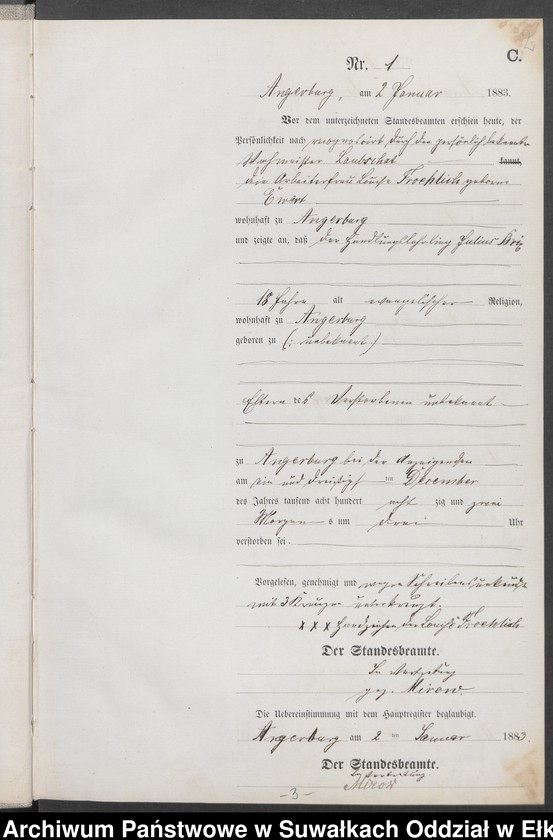 C.
Nr. 1
Angerburg, am 2 Januar 1883.
Vor dem unterzeichneten Standesbeamten erschien heute, der
Persönlichkeit nach, durch den persönlich bekannten
Wachmeister Laubschat kannt,
die Arbeiterfrau Louise Froehlich geborne
Ewert
wohnhaft zu Angerburg
und zeigte an, daß der Handlungslehrling Julius
16 Jahre alt evangelischer Religion,
wohnhaft zu Angerburg
geboren zu (: unbekannt :)
Eltern des Verstorbenen unbekannt
zu Angerburg bei der Anzeigenden
am ein und dreißigsten December
des Jahres tausend acht hundert acht zig und zwei
Morgen s um drei Uhr
verstorben sei.
Vorgelesen, genehmigt und wegen Schreibensunkunde
mit 3 Kreuzen unterkreuzt.
x x x Handzeichen der Louise Froehlich
Der Standesbeamte.
In Vertretung
gez. Mirow
Die Uebereinstimmung mit dem Hauptregister beglaubigt.
Angerburg am 2 ten Januar 1883.
Der Standesbeamte.
In Vertretung.
Mirow
-3-
Archiwum Państwowe w Suwałkach Oddział w Ełk